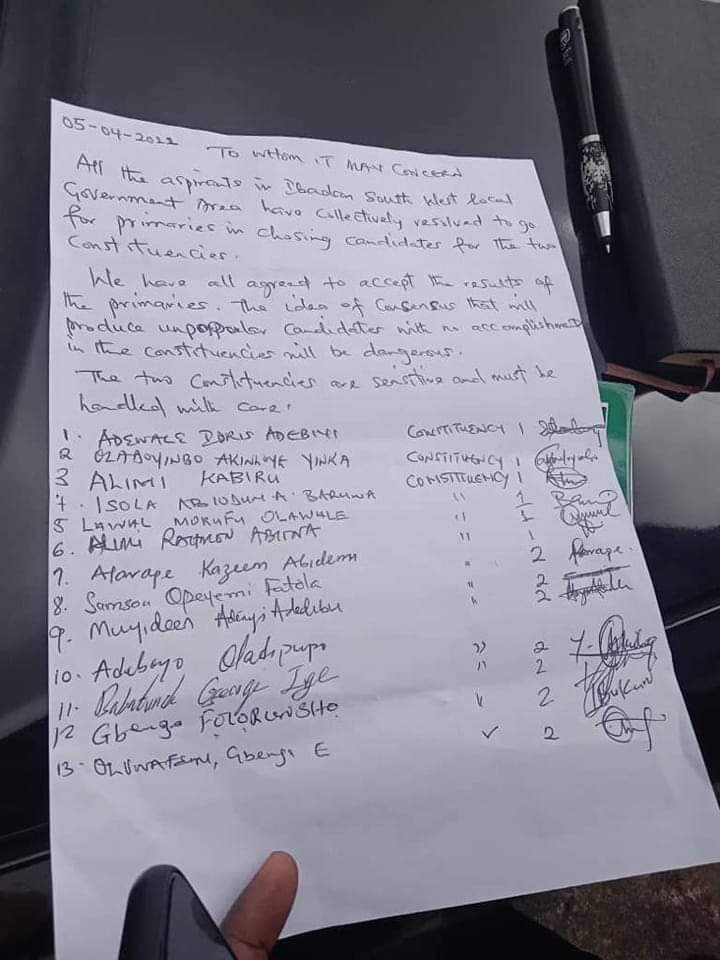 05-04-2022
TO WHOM IT MAY CONCERN
All the aspirants in Ibadan South West local
Government Area have collectively resolved to go
for primaries in chosing candidates for the two
Constituencies.
We have all agreed to accept the results of
the primaries. The idea of Consensus that will
produce unpopular candidates with no accomplishment
in the constituencies will be dangerous.
The two Constituencies are sensitive and must be
handled with care.
1. ADEWALE DORIS ADEBIYI CONSTITUENCY 1
2 OLADOYINBO AKINLOYE YINKA CONSTITUENCY 1
3 ALIMI KABIRU CONSTITUENCY 1
4. ISOLA ABIODUN A. BARUWA " 1
5 LAWAL MORUFU OLAWALE " 1
6. ALIMI RAHMON ABIONA " 1
7. Alarape Kazeem Abidemi " 2 Alarape.
8. Samson Opeyemi Fatola " 2
9. Muyideen Adeniyi Adedibu " 2
10. Adebayo Oladipupo " 2
11. Babatunde George Ige " 2
12 Gbenga FOLORUNSHO " 2
13. OLUWAFEMI, Gbenga E ✓ 2